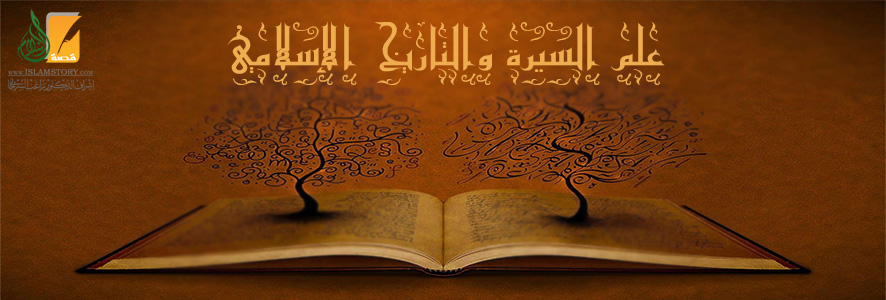 علم السيرة والتاريخ الإسلامي
قصة
www.ISLAMSTORY.com
إشراف الدكتور راغب السرجاني